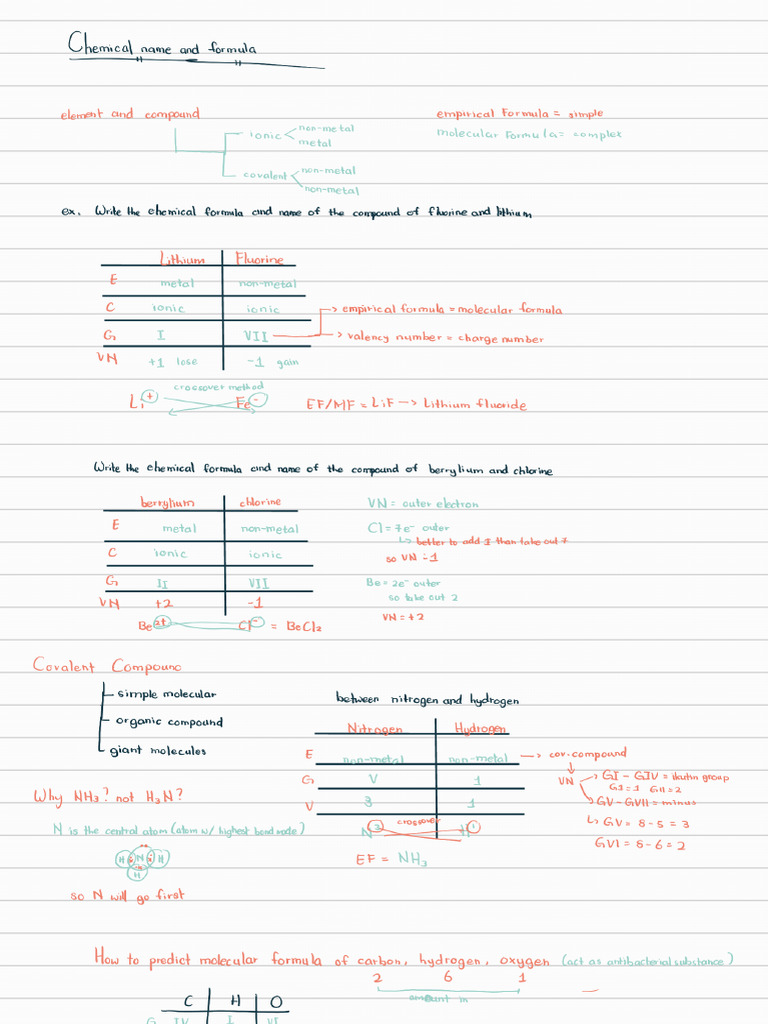 Chemical name and formula
element and compound
empirical Formula = simple
ionic
non-metal
metal
molecular Formula = complex
covalent
non-metal
non-metal
ex. Write the chemical formula and name of the compound of fluorine and lithium
Lithium Fluorine
E metal non-metal
C ionic ionic → empirical formula = molecular formula
G I VII → valency number = charge number
VN +1 lose -1 gain
crossover method
Li + Fe - EF/MF = LiF → Lithium fluoride
Write the chemical formula and name of the compound of berrylium and chlorine
berrylium chlorine
E metal non-metal
C ionic ionic
G II VII
VN +2 -1
Be 2+ Cl - = BeCl2
VN = outer electron
Cl = 7e- outer
↳ better to add 1 than take out 7
so VN = -1
Be = 2e- outer
so take out 2
VN = +2
Covalent Compound
simple molecular
organic compound
giant molecules
between nitrogen and hydrogen
Nitrogen Hydrogen
E non-metal non-metal → cov. compound
G V 1
V 3 1
crossover
N 3 H 1
EF = NH3
VN
GI - GIV = group
G1 = 1 GII = 2
GV - GVII = minus
↳ GV = 8 - 5 = 3
GVI = 8 - 6 = 2
Why NH3? not H3N?
N is the central atom (atom w/ highest bond node)
H N H
H
so N will go first
How to predict molecular formula of carbon, hydrogen, oxygen (act as antibacterial substance)
2 6 1
amount in
C H O
G IV I VI